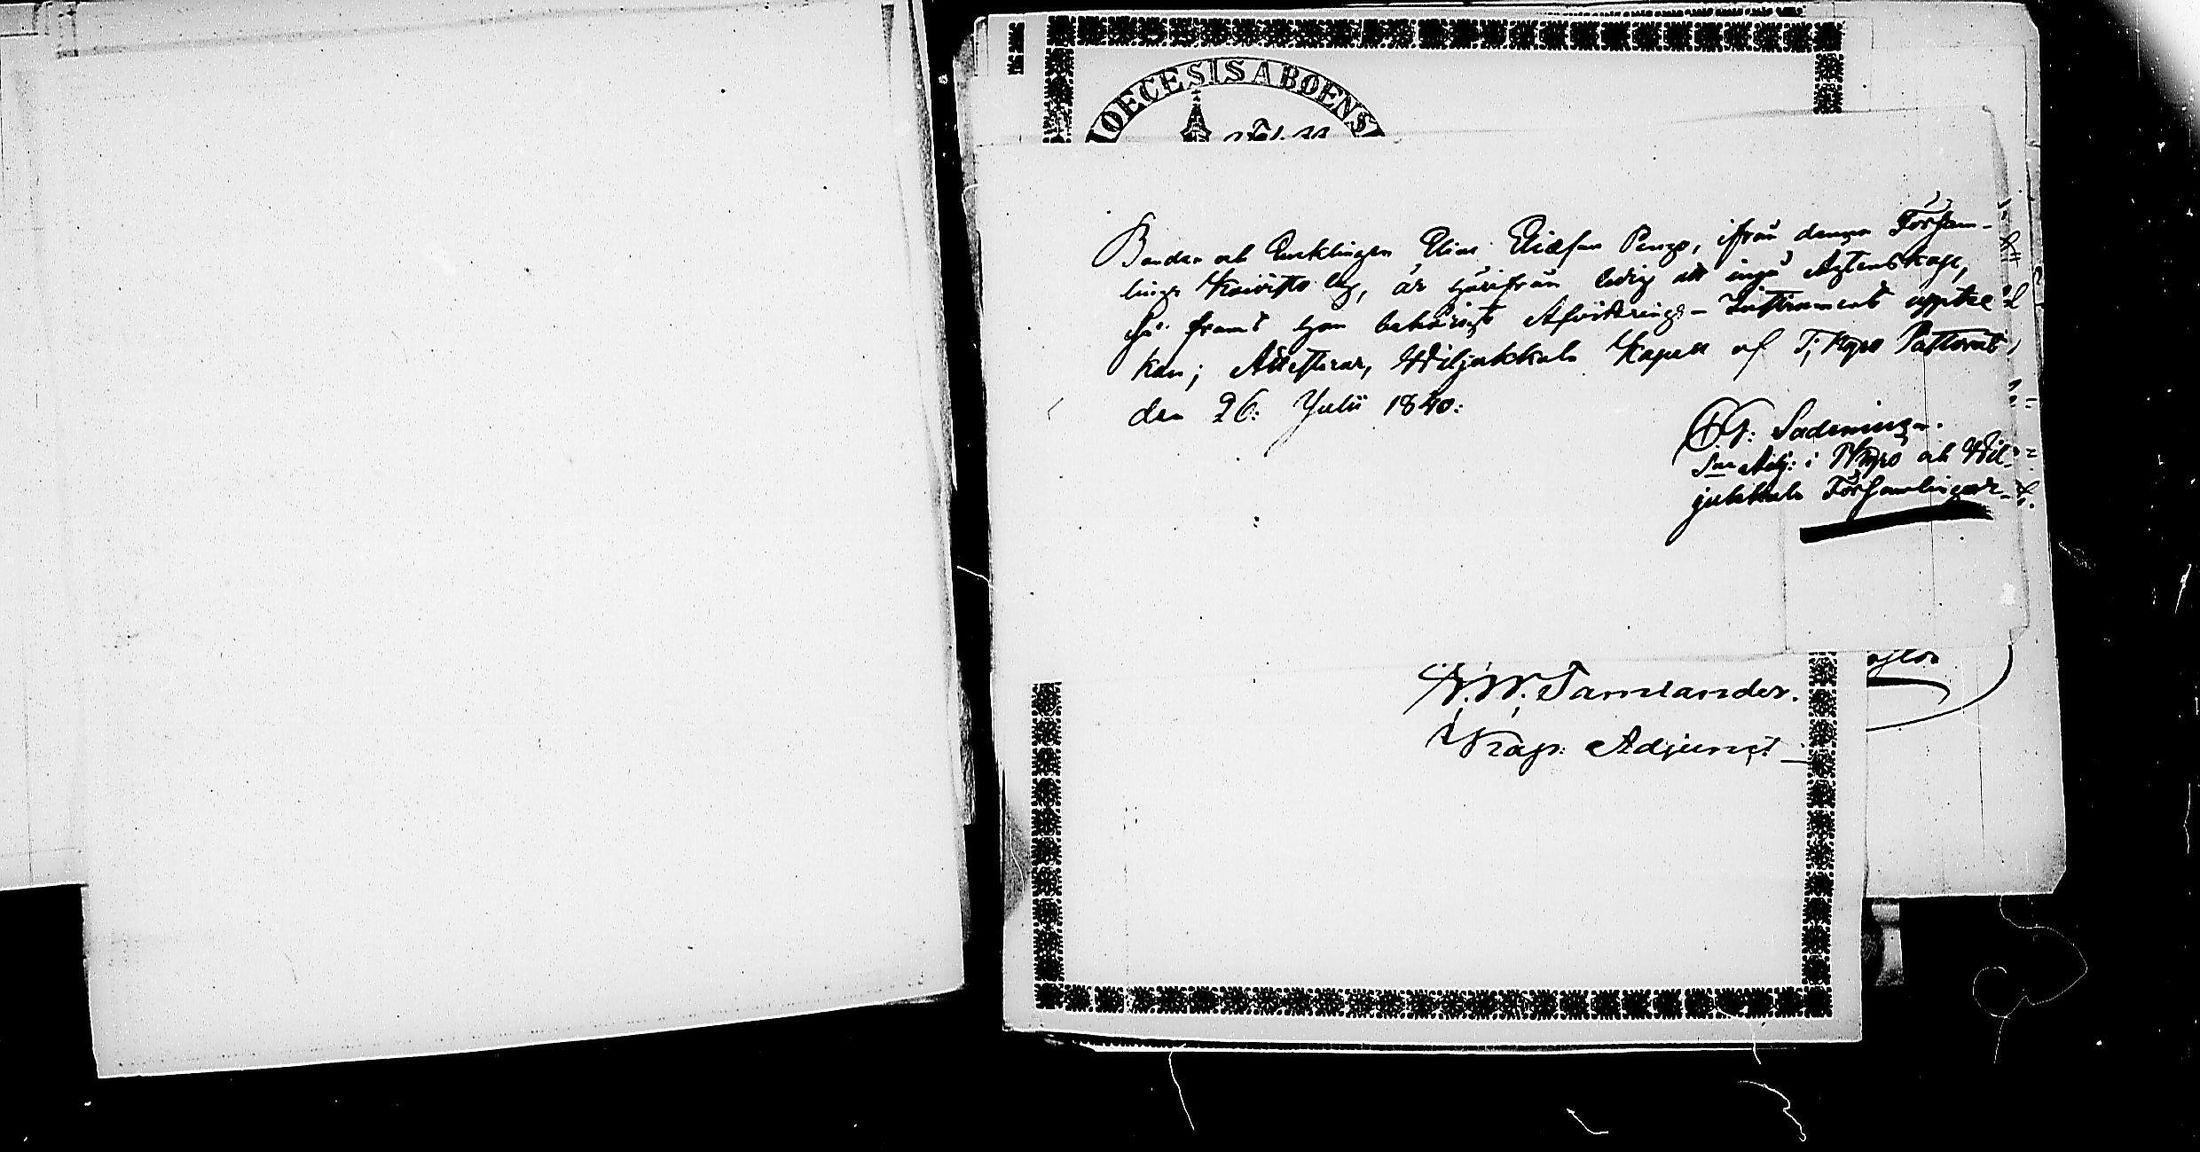 OECESIS ABOENS
Bonden och Enklingen Elias Eliæson Penzo, ifrån denna Försam-
lings Koivisto by, är härifrån ledig att ingå Ägtenskap,
så framt han behörigt Afvittrings-Instrument uppte
kan; Attesterar, Wiljakkala Kapell af T, Kyro Pastorat,
den 26: Julii 1840:
Sadenius
Adj: i Kyro och Wil-
jakkala Församlingar
W. Tamlander.
Kap. Adjunct